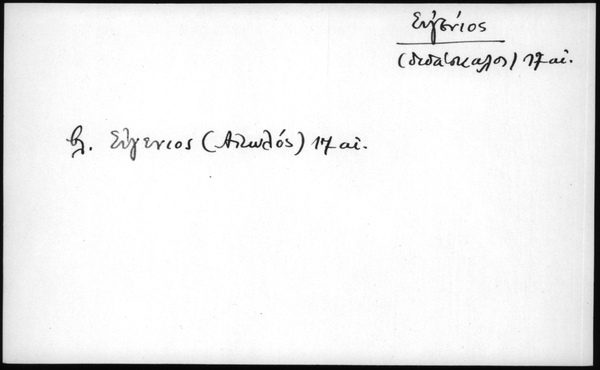 Εὐγένιος
(διδάσκαλος) 17 αἰ.
βλ. Εὐγένιος (Αἰτωλός) 17 αἰ.